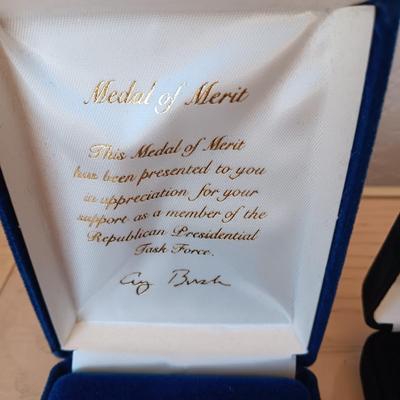 Medal of Merit
This Medal of Merit
has been presented to you
in appreciation for your
support as a member of the
Republican Presidential
Task Force.
Bush